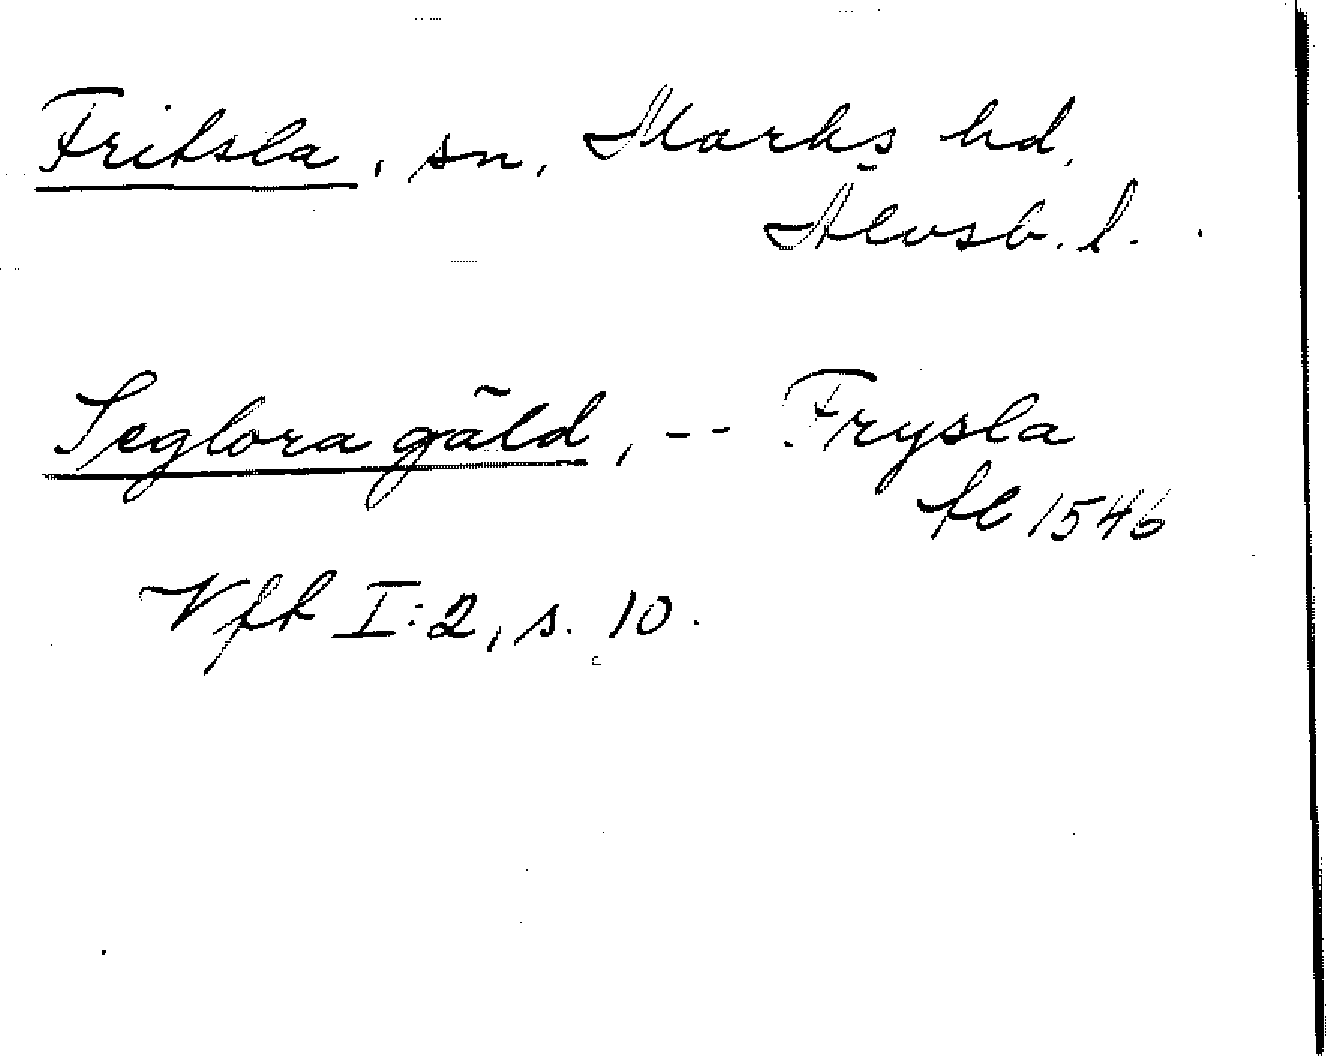 Fritsla, sn, Marks hd,
Älvsb. l.
Seglora gäld, -- Frysla
fl 1546
Vft I:2, s. 10.